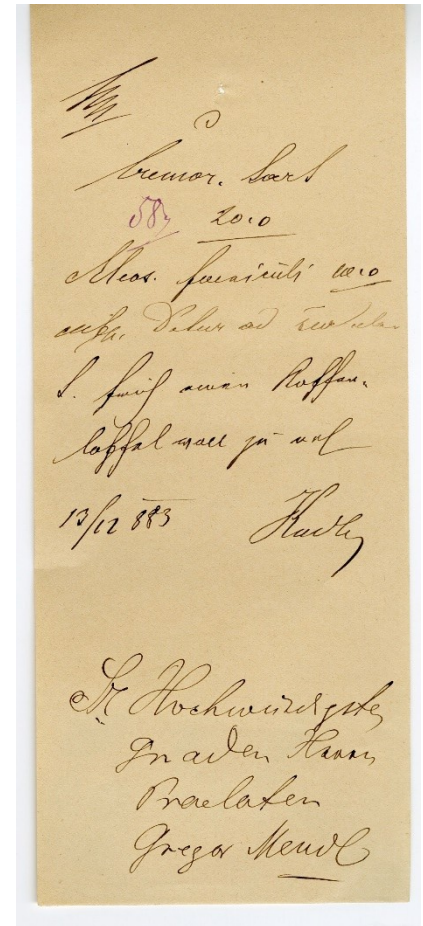 Rp
Cremor. Tart
587 20.0
Elaeos. foeniculi 10.0
Detur ad
S. früh einen Kaffee-
löffel voll zu
13/12 883 Kudly
Sr Hochwürdigsten
Gnaden Herrn
Praelaten
Gregor Mendl